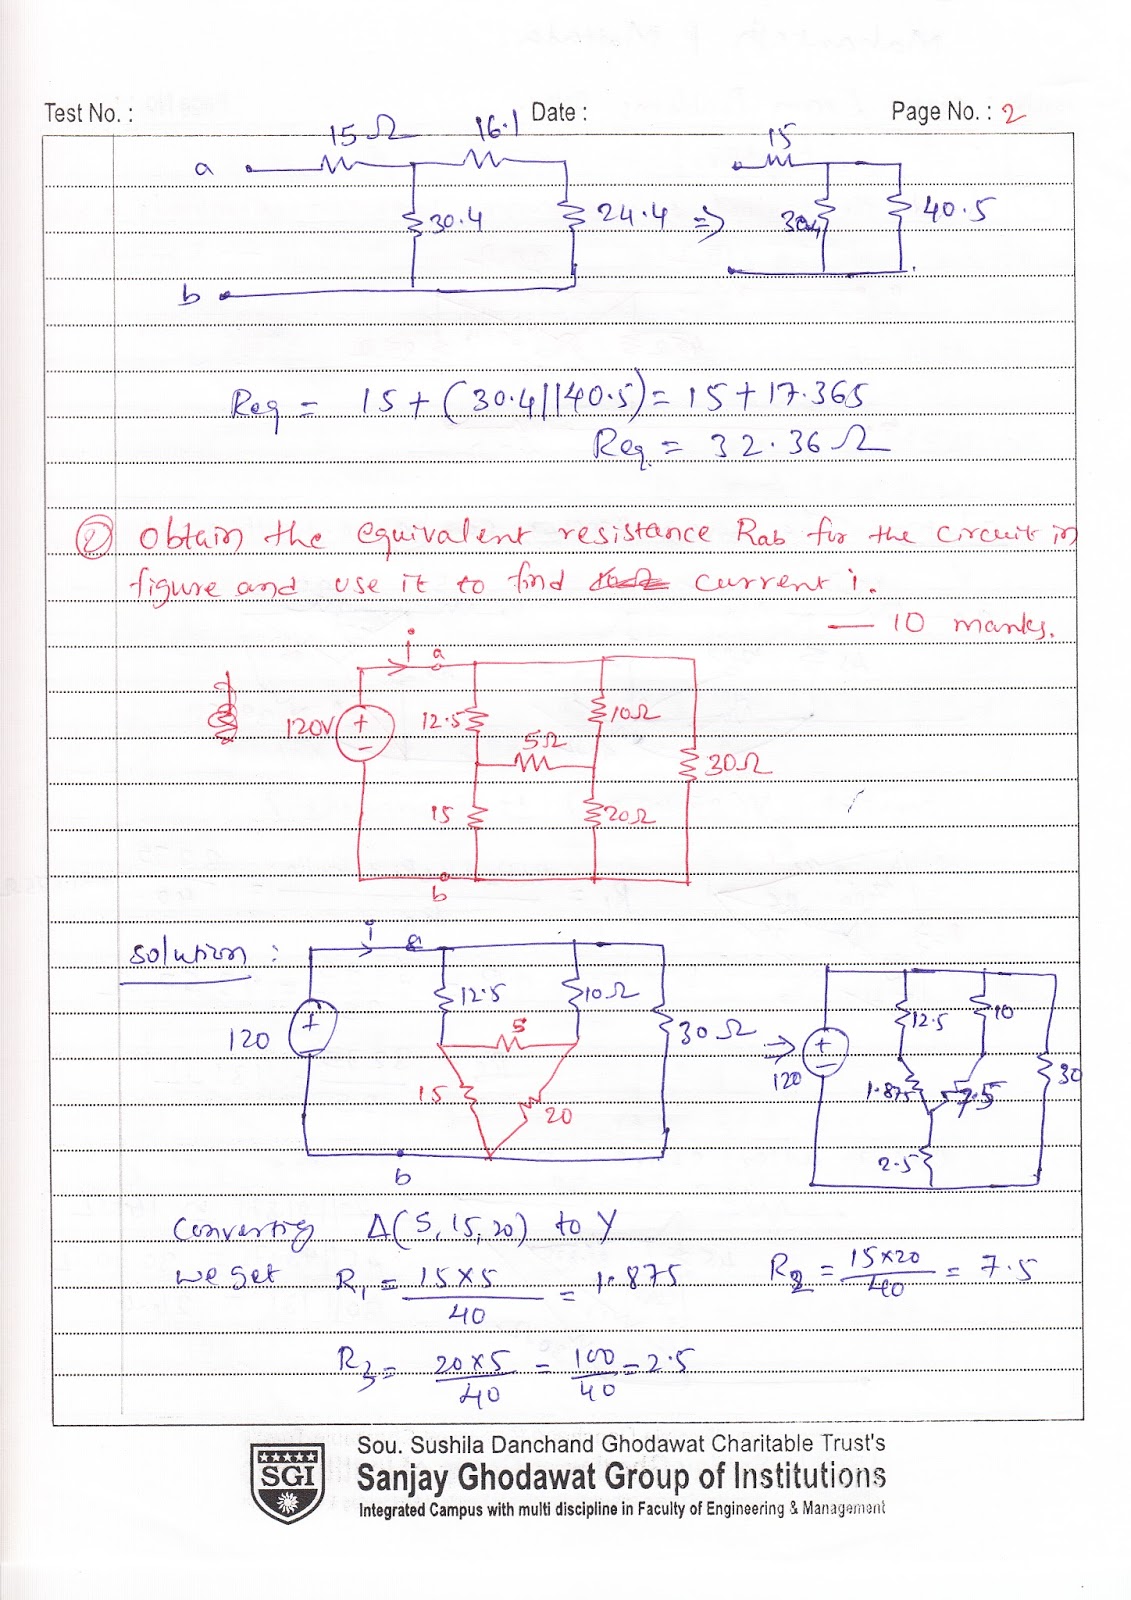 Test No. :
Date :
Page No. : 2
15Ω
16.1
15
a
30.4
24.4
⇒
30.4
40.5
b
Req = 15 + (30.4||40.5) = 15 + 17.365
Req. = 32.36 Ω
② Obtain the equivalent resistance Rab for the circuit in
figure and use it to find current i.
— 10 marks.
i
a
120V
+
-
12.5
10Ω
5Ω
30Ω
15
20Ω
b
Solution :
i
a
120
+
-
12.5
10Ω
5
30Ω
15
20
b
⇒
120
+
-
12.5
10
30
1.875
7.5
2.5
Converting Δ(5, 15, 20) to Y
we get R1 = 15×5/40 = 1.875
R2 = 15×20/40 = 7.5
R3 = 20×5/40 = 100/40 = 2.5
SGI
Sou. Sushila Danchand Ghodawat Charitable Trust's
Sanjay Ghodawat Group of Institutions
Integrated Campus with multi discipline in Faculty of Engineering & Management